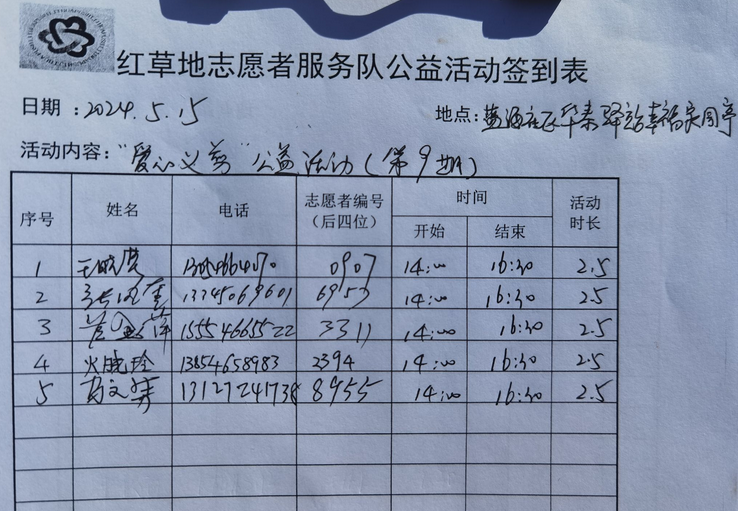 红草地志愿者服务队公益活动签到表
日期：2024.5.15 地点：
活动内容："爱心义剪"公益活动（第9期）
序号 姓名 电话 志愿者编号（后四位） 时间 活动时长
开始 结束
1 王晓莹 0907 14:00 16:30 2.5
2 13345069601 6953 14:00 16:30 2.5
3 15554665522 3311 14:00 16:30 2.5
4 火晓玲 13854658983 2394 14:00 16:30 2.5
5 13127241738 8955 14:00 16:30 2.5